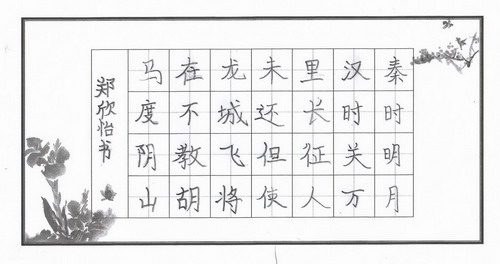 秦时明月
汉时关万
里长征人
未还但使
龙城飞将
在不教胡
马度阴山
郑欣怡书